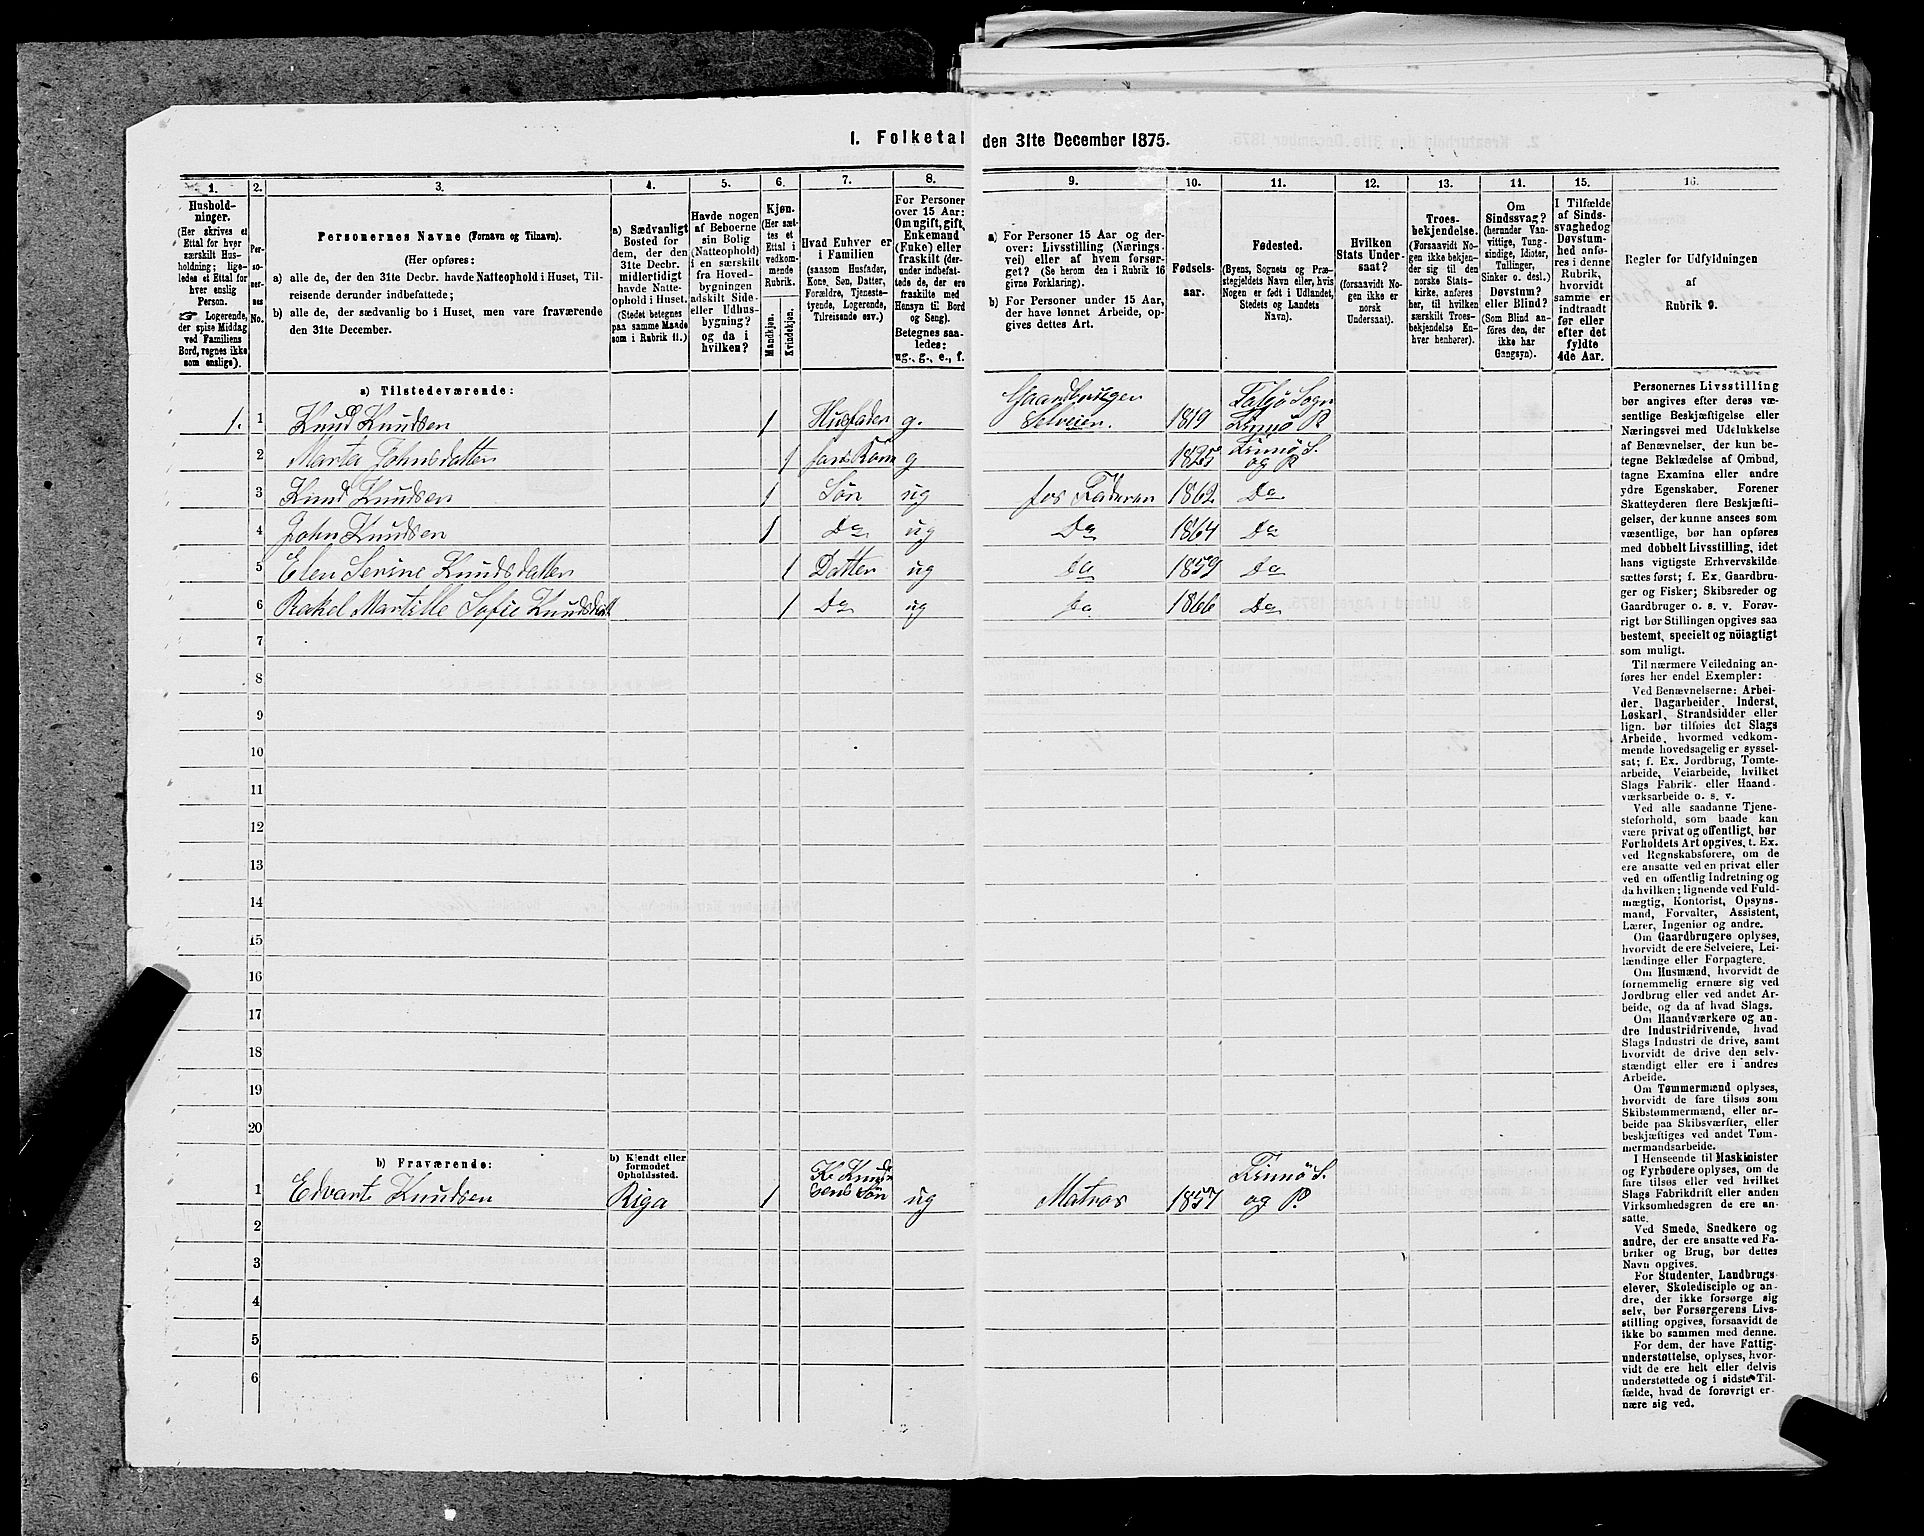 1. Folketal den 31te December 1875.
1. 2. 3. 4. 5. 6. 7. 8. 9. 10. 11. 12. 13. 11. 15. 16.
Hushold-
ninger.
(Her skrives et
Ettal for hver
særskilt Hus-
holdning; lige-
ledes et Ettal for
hver enslig
Person.
☞ Logerende,
der spise Middag
ved Familiens
Bord, regnes ikke
som enslige).
Per-
so-
ner-
nes
No.
Personernes Navne (Fornavn og Tilnavn).
(Her opføres:
a) alle de, der den 31te Decbr. havde Natteophold i Huset, Til-
reisende derunder indbefattede;
b) alle de, der sædvanlig bo i Huset, men vare fraværende
den 31te December.
a) Sædvanligt
Bosted for
dem, der den
31te Decbr.
midlertidigt
havde Natte-
ophold i Huset.
(Stedet betegnes
paa samme Maade
som i Rubrik 11.)
Havde nogen
af Beboerne
sin Bolig
(Natteophold)
i en særskilt
fra Hoved-
bygningen
adskilt Side-
eller Udhus-
bygning?
og da i
hvilken?
Kjøn.
(Her sæt-
tes et
Ettal i
vedkom-
mende
Rubrik.
Mandkjøn.
Kvindekjøn.
Hvad Enhver er
i Familien
(saasom Husfader,
Kone, Søn, Datter,
Forældre, Tjeneste-
tyende, Logerende,
Tilreisende osv.)
For Personer
over 15 Aar:
Om ugift, gift,
Enkemand
(Enke) eller
fraskilt (der-
under indbefat-
tede de, der ere
fraskilte med
Hensyn til Bord
og Seng).
Betegnes saa-
ledes:
ug., g., e., f.
a) For Personer 15 Aar og der-
over: Livsstilling (Nærings-
vei) eller af hvem forsør-
get? (Se herom den i Rubrik 16
givne Forklaring).
b) For Personer under 15 Aar,
der have lønnet Arbeide, op-
gives dettes Art.
Fødsels-
aar.
Fødested.
(Byens, Sognets og Præ-
stegjeldets Navn eller, hvis
Nogen er født i Udlandet,
Stedets og Landets
Navn).
Hvilken
Stats Under-
saat?
(forsaavidt No-
gen ikke er
norsk
Undersaat).
Troes-
bekjendelse.
(Forsaavidt No-
gen ikke bekjen-
der sig til den
norske Stats-
kirke, anføres
her, til hvilken
særskilt Troes-
bekjendelse En-
hver henhører).
Om
Sindssvag?
(herunder Van-
vittige, Tung-
sindige, Idioter,
Tullinger,
Sinker o. desl.)
Døvstum?
eller Blind?
(Som Blind an-
føres den, der
ikke har
Gangsyn).
I Tilfælde
af Sinds-
svaghed og
Døvstum-
hed anfø-
res i denne
Rubrik,
hvorvidt
samme er
indtraadt
før eller
efter det
fyldte
4de Aar.
Regler for Udfyldningen
af
Rubrik 9.
a) Tilstedeværende:
1. 1 Knud Knudsen 1 Husfader g. Gaardbruger Selveier. 1819 Sogn Finnø P
2 Marta Johnsdatter 1 hans Kone g 1825 Finnø S. og P
3 Knud Knudsen 1 Søn ug hos Faderen 1862 Do
4 John Knudsen 1 Do ug Do 1864 Do
5 Elen Serine Knudsdatter 1 Datter ug do 1859 Do
6 Rakel Martille Sofie Knudsdatt 1 Do ug do. 1866 Do
7
8
9
10
11
12
13
14
15
16
17
18
19
20
b) Fraværende:
b) Kjendt eller
formodet
Opholdssted.
1 Edvart Knudsen Riga 1 K. Knud sens Søn ug Matros 1857 Finnø S. og P.
2
3
4
5
6
Personernes Livsstilling
bør angives efter deres væ-
sentlige Beskjæftigelse eller
Næringsvei med Udelukkelse
af Benævnelser, der kun be-
tegne Beklædelse af Ombud,
tagne Examina eller andre
ydre Egenskaber. Forener
Skatteyderen flere Beskjæfti-
gelser, der kunne ansees som
væsentlige, bør han opføres
med dobbelt Livsstilling, idet
hans vigtigste Erhvervskilde
sættes først; f. Ex. Gaardbru-
ger og Fisker; Skibsreder og
Gaardbruger o. s. v. Forøv-
rigt bør Stillingen opgives saa
bestemt, specielt og nöiagtigt
som muligt.
Til nærmere Veiledning an-
føres her endel Exempler:
Ved Benævnelserne: Arbei-
der, Dagarbeider, Inderst,
Løskarl, Strandsidder eller
lign. bør tilføies det Slags
Arbeide, hvormed vedkom-
mende hovedsagelig er syssel-
sat; f. Ex. Jordbrug, Tomte-
arbeide, Veiarbeide, hvilket
Slags Fabrik- eller Haand-
værksarbeide o. s. v.
Ved alle saadanne Tjene-
steforhold, som baade kan
være privat og offentligt, bør
Forholdets Art opgives, t. Ex.
ved Regnskabsførere, om de
ere ansatte ved en privat eller
ved en offentlig Indretning og
da hvilken; lignende ved Fuld-
mægtig, Kontorist, Opsyns-
mand, Forvalter, Assistent,
Lærer, Ingeniør og andre.
Om Gaardbrugere oplyses,
hvorvidt de ere Selveiere, Lei-
lændinge eller Forpagtere.
Om Husmænd, hvorvidt de
fornemmelig ernære sig ved
Jordbrug eller ved andet Ar-
beide, og da af hvad Slags.
Om Haandværkere og an-
dre Industridrivende, hvad
Slags Industri de drive, samt
hvorvidt de drive den selv-
stændigt eller ere i andres
Arbeide.
Om Tømmermænd oplyses,
hvorvidt de fare tilsøs som
Skibstømmermænd, eller ar-
beide paa Skibsværfter, eller
beskjæftiges ved andet Tøm-
mermandsarbeide.
I Henseende til Maskinister
og Fyrbødere oplyses, om de
fare tilsøs eller ved hvilket
Slags Fabrikdrift eller anden
Virksomhedsgren de ere an-
satte.
Ved Smede, Snedkere og
andre, der ere ansatte ved Fa-
briker og Brug, bør dettes
Navn opgives.
For Studenter, Landbrugs-
elever, Skoledisciple og an-
dre, der ikke forsørge sig
selv, bør Forsørgerens Livs-
stilling opgives, forsaavidt de
ikke bo sammen med denne.
For dem, der have Fattig-
understøttelse, oplyses, hvor-
vidt de ere helt eller delvis
understøttede og i sidste Til-
fælde, hvad de forøvrigt er-
nære sig ved.